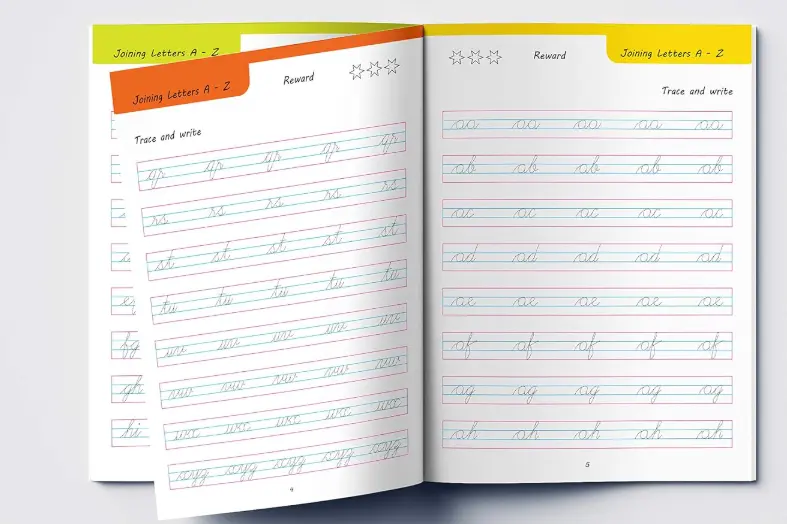 Joining Letters A - Z
fg
gh
hi
Joining Letters A - Z
Reward
Trace and write
qr qr qr qr qr
rs rs rs rs rs
st st st st st
tu tu tu tu tu
uv uv uv uv uv
vw vw vw vw vw
wx wx wx wx wx
xyz xyz xyz xyz xyz
4
Reward
Joining Letters A - Z
Trace and write
aa aa aa aa aa
ab ab ab ab ab
ac ac ac ac ac
ad ad ad ad ad
ae ae ae ae ae
af af af af af
ag ag ag ag ag
ah ah ah ah ah
5